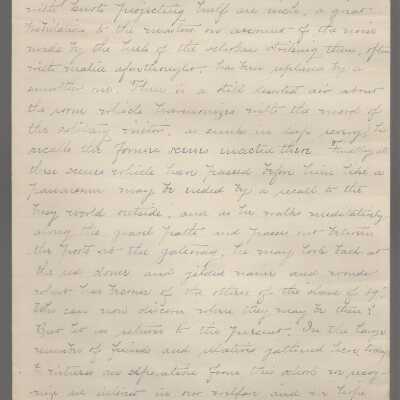 with knots projecting itself are made, a great
tribulation to the masters on account of the noise
made by the heels of the scholars striking them, often
with malice aforethought, has been replaced by a
smoother one. There is a still deserted air about
the room which harmonizes with the mood of
the solitary visitor, as sunk in deep revery he
recalls the former scenes enacted there. Finally all
these scenes which have passed before him like a
panorama may be ended by a recall to the
busy world outside, and as he walks meditatively
along the gravel path and passes out between
the posts at the gateway, he may look back at
the red doors and gilded names and wonder
what has become of the others of the class of 89.
Who can now discern where they may be then?
But let us return to the present. In the large
numbers of friends and relatives gathered here today
to witness our separation from this school in
our welfare and we hope